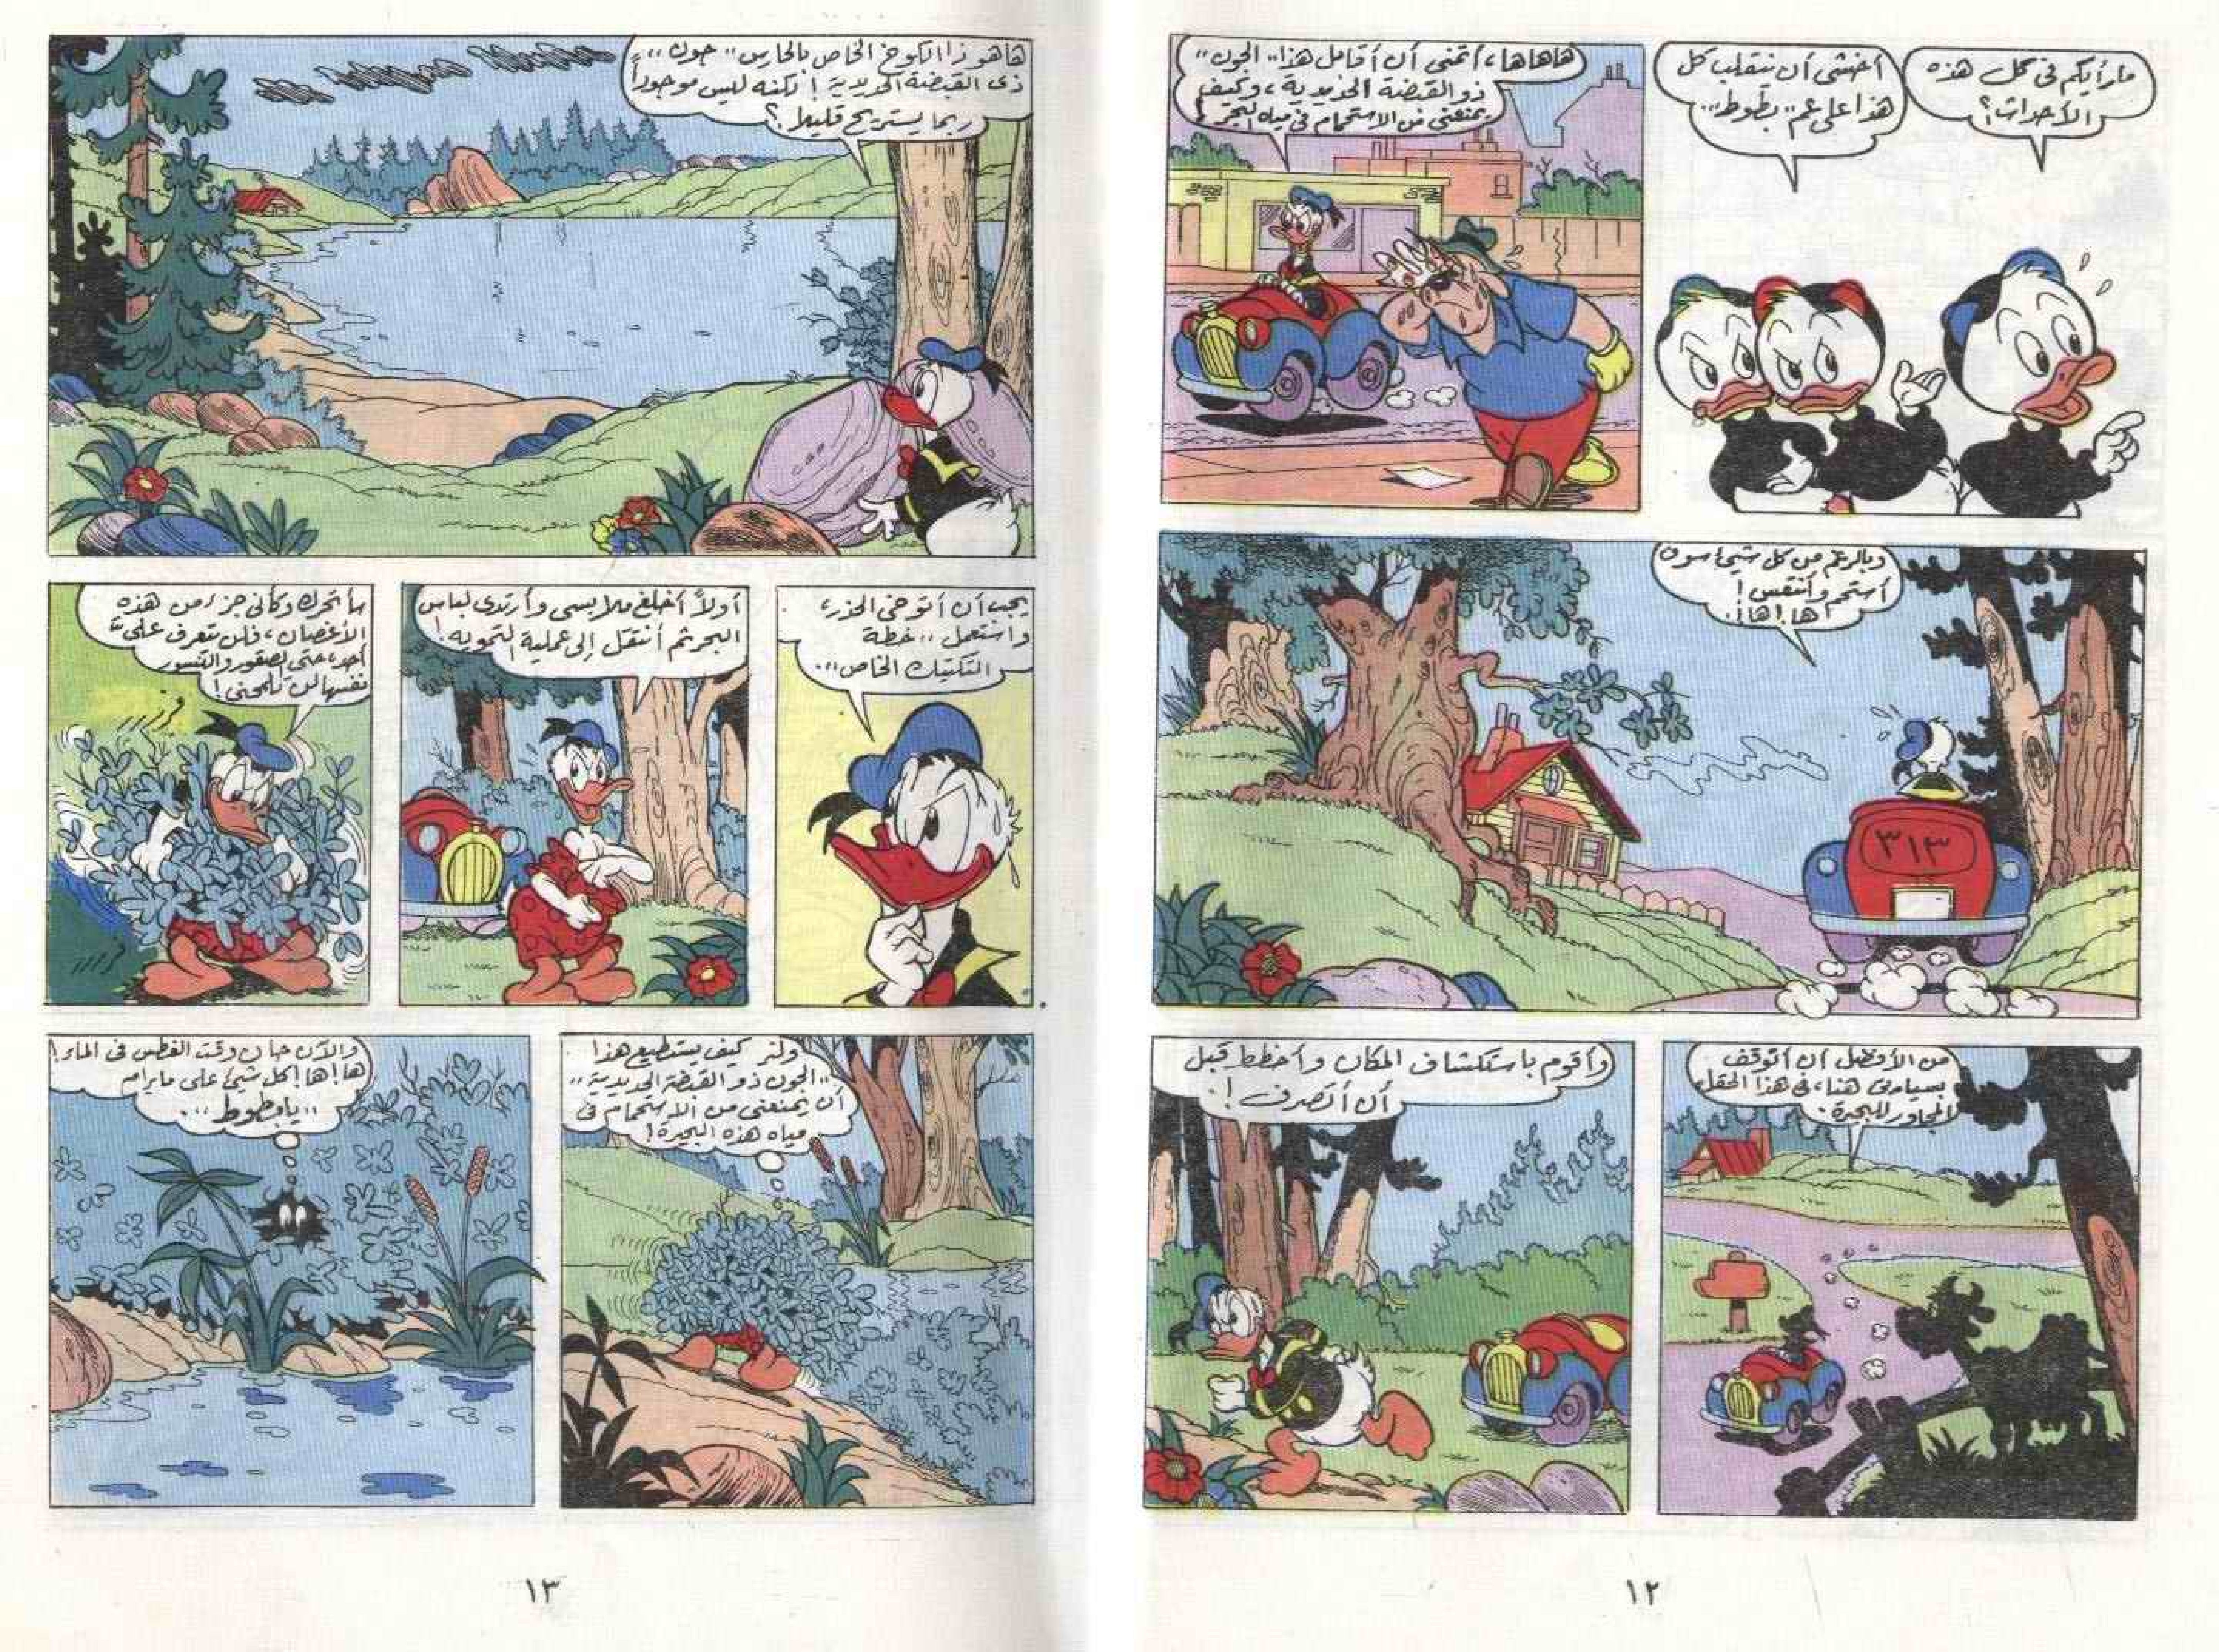 ما رأيكم فى كل هذه
الأحداث؟
أخشى أن ينقلب كل
هذا على عم " بطوط "..
هاهاها، أتمنى أن أقابل هذا " الجون "
ذو القبضة الحديدية، وكيف
يمنعنى من الاستحمام فى مياه البحر !
وبالرغم من كل شيئ سوف
أستحم وأنتقس !
ها ! ها !.
٣١٣
من الأفضل أن أتوقف
بسيارتى هنا، فى هذا الحقل
المجاور للبحيرة.
وأقوم باستكشاف المكان وأخطط قبل
أن أتصرف !.
١٢
هاهو ذا الكوخ الخاص بالحارس " جون "
ذى القبضة الحديدية ! لكنه ليس موجوداً
ربما يستريح قليلا ؟.
يجب أن أتوخى الحذر،
واستعمل " خطة
التكتيك الخاص ".
أولاً أخلع ملابسى وأرتدى لباس
البحر ثم أنتقل إلى عملية التمويه !
سأتحرك وكأنى جزء من هذه
الأغصان، فلن يتعرف على
أحد، حتى الصقور والنسور
نفسها لن تلمحنى !
فرز..
فررر
ولنر كيف يستطيع هذا
" الجون ذو القبضة الحديدية "
أن يمنعنى من الاستحمام فى
مياه هذه البحيرة !
والآن حان وقت الغطس فى الماء !
ها ! ها ! كل شيئ على مايرام
" يابطوط "..
١٣